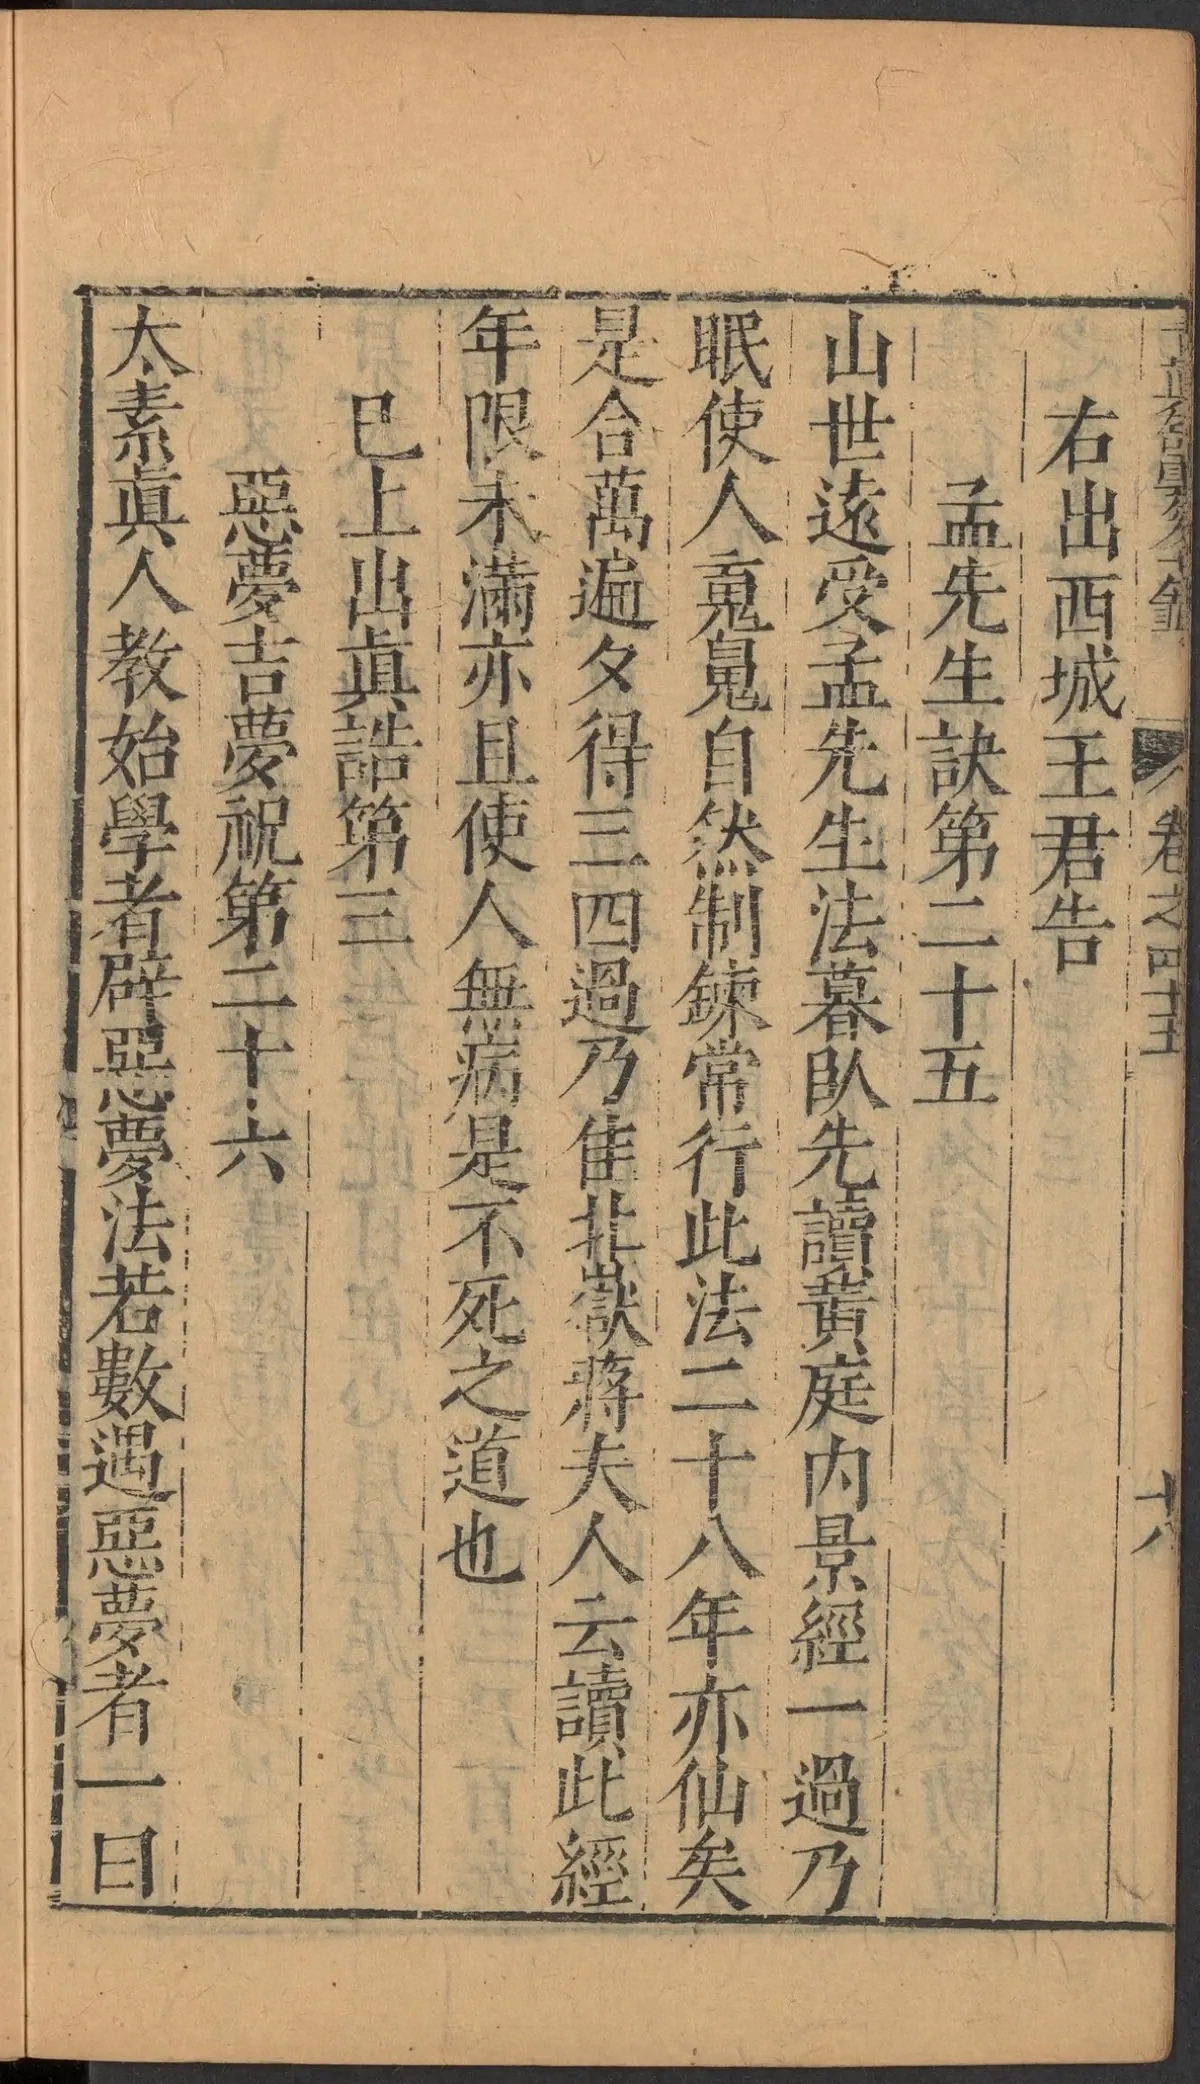 卷之四十五
十八
右出西城王君告
孟先生訣第二十五
山世遠受孟先生法暮臥先讀黃庭内景經一過乃
眠使人䰟鬼自然制鍊常行此法二十八年亦仙矣
是合萬遍夕得三四過乃佳北嶽蔣夫人云讀此經
年限未滿亦且使人無病是不死之道也
巳上出眞誥第三
惡夢吉夢祝第二十六
太素眞人教始學者辟惡夢法若數遇惡夢者一曰